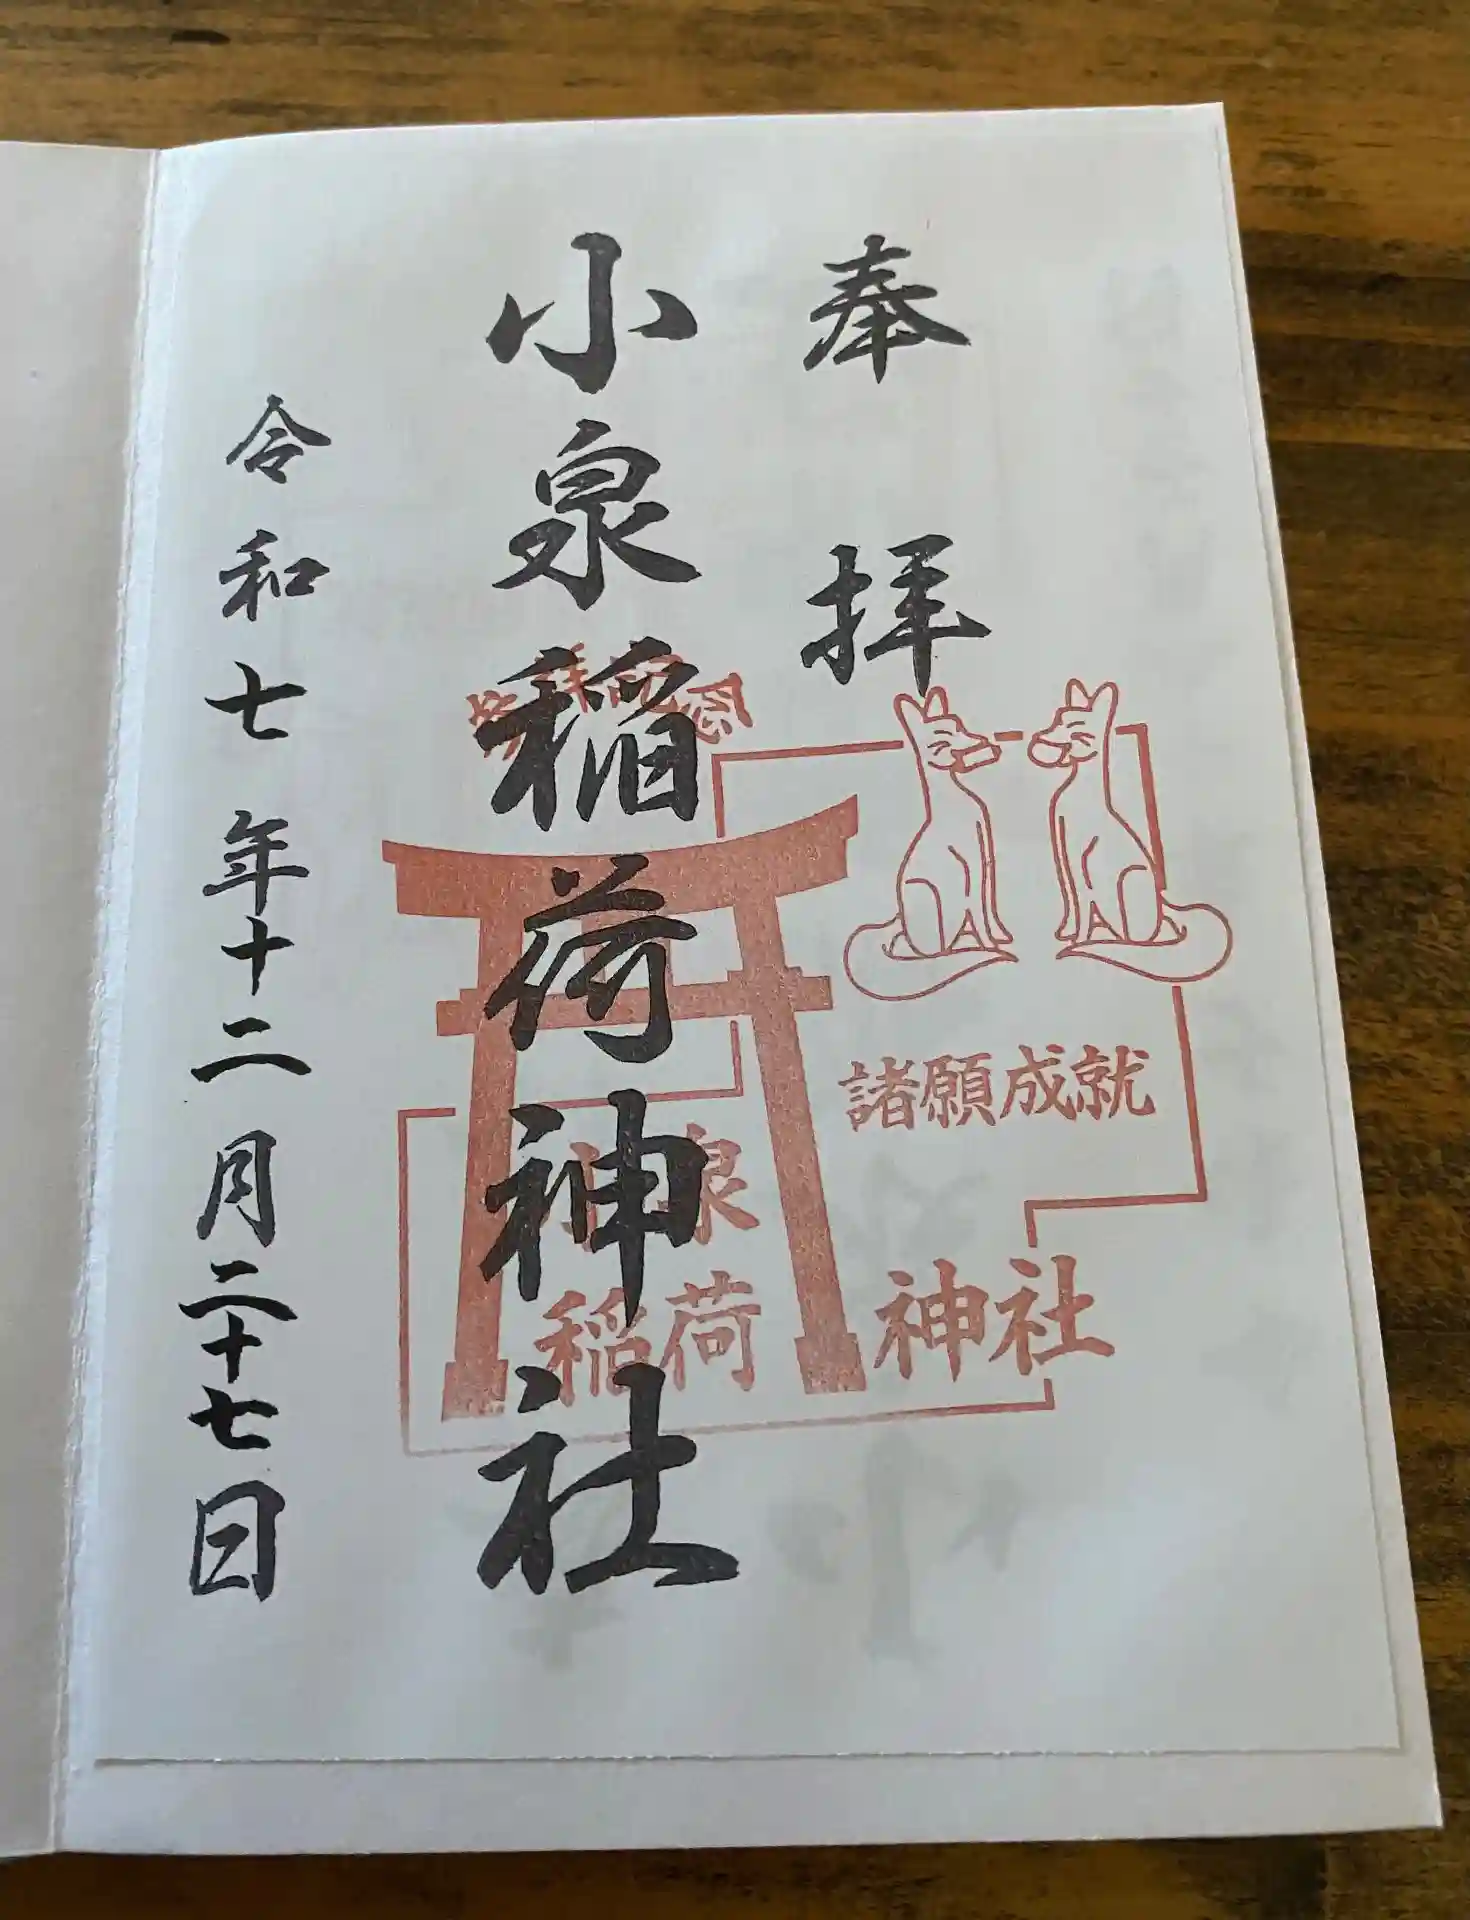 奉拝
小泉稲荷神社
令和七年十二月二十七日
参拝記念
諸願成就
小泉
稲荷
神社